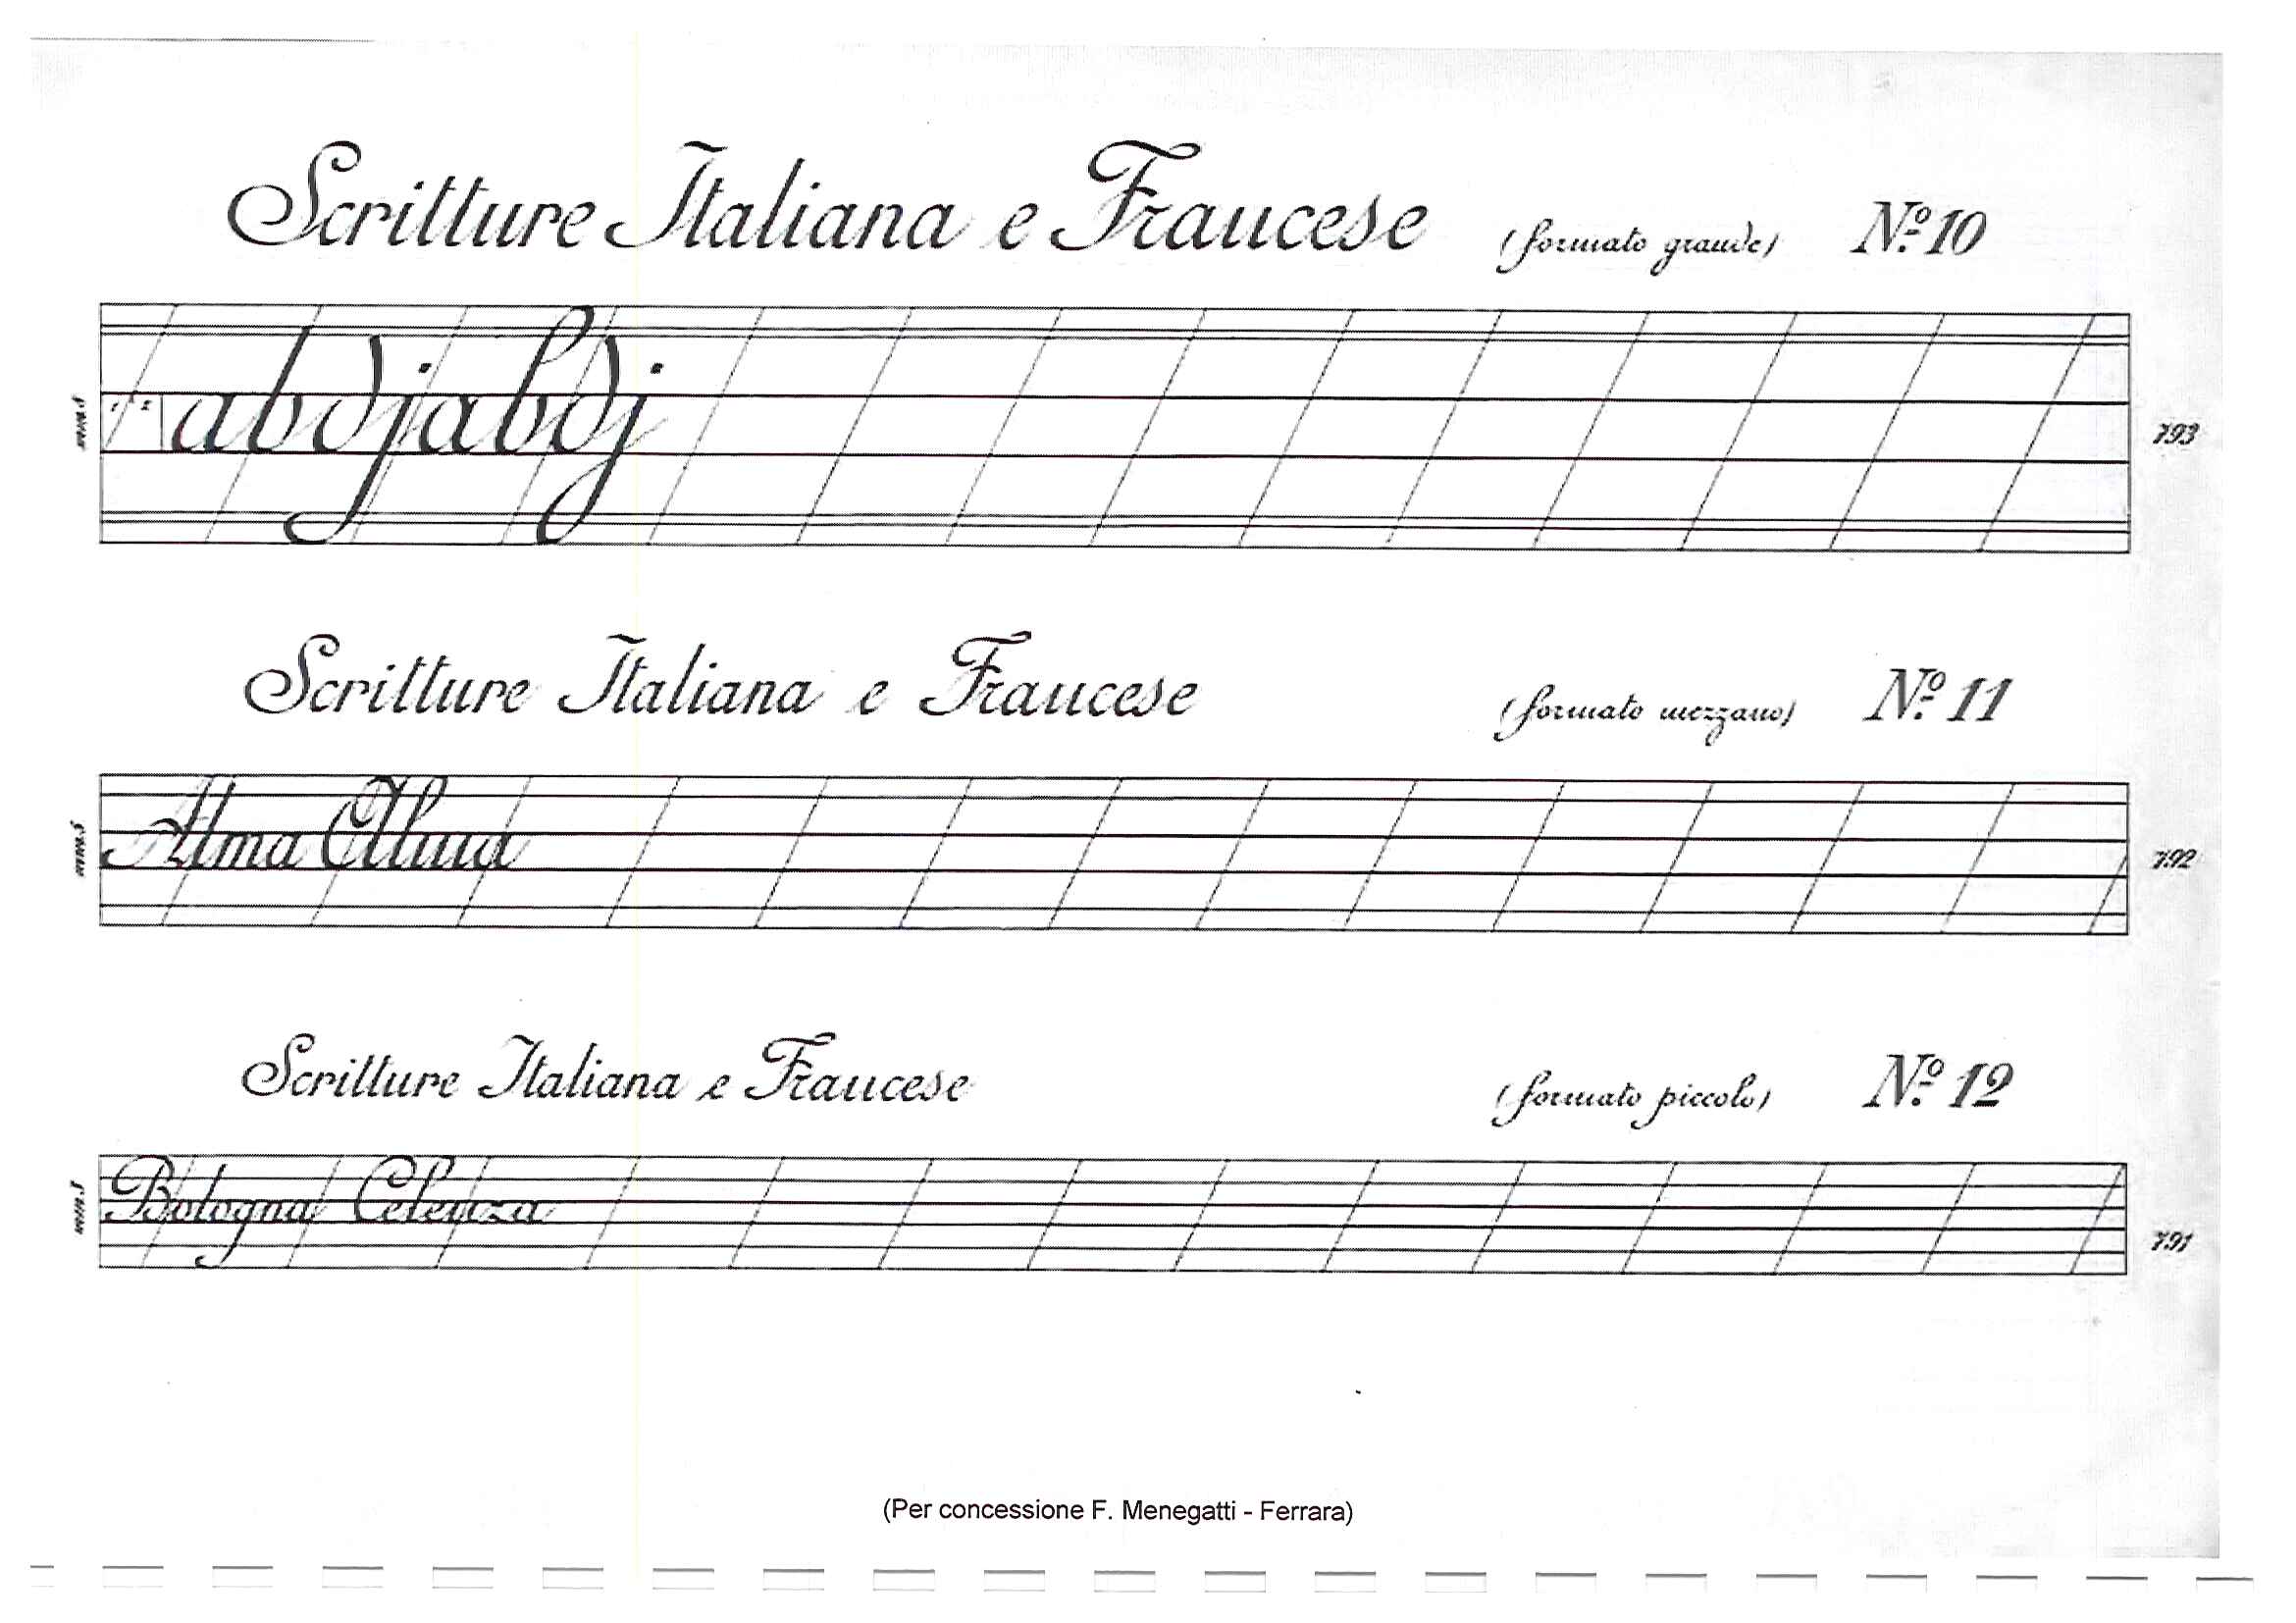 Scritture Italiana e Francese (formato grande) N.º 10
1 2 abdjabdj
793
Scritture Italiana e Francese (formato mezzano) N.º 11
Alma Alma
792
Scritture Italiana e Francese (formato piccolo) N.º 12
Bologna Celenza
791
(Per concessione F. Menegatti - Ferrara)